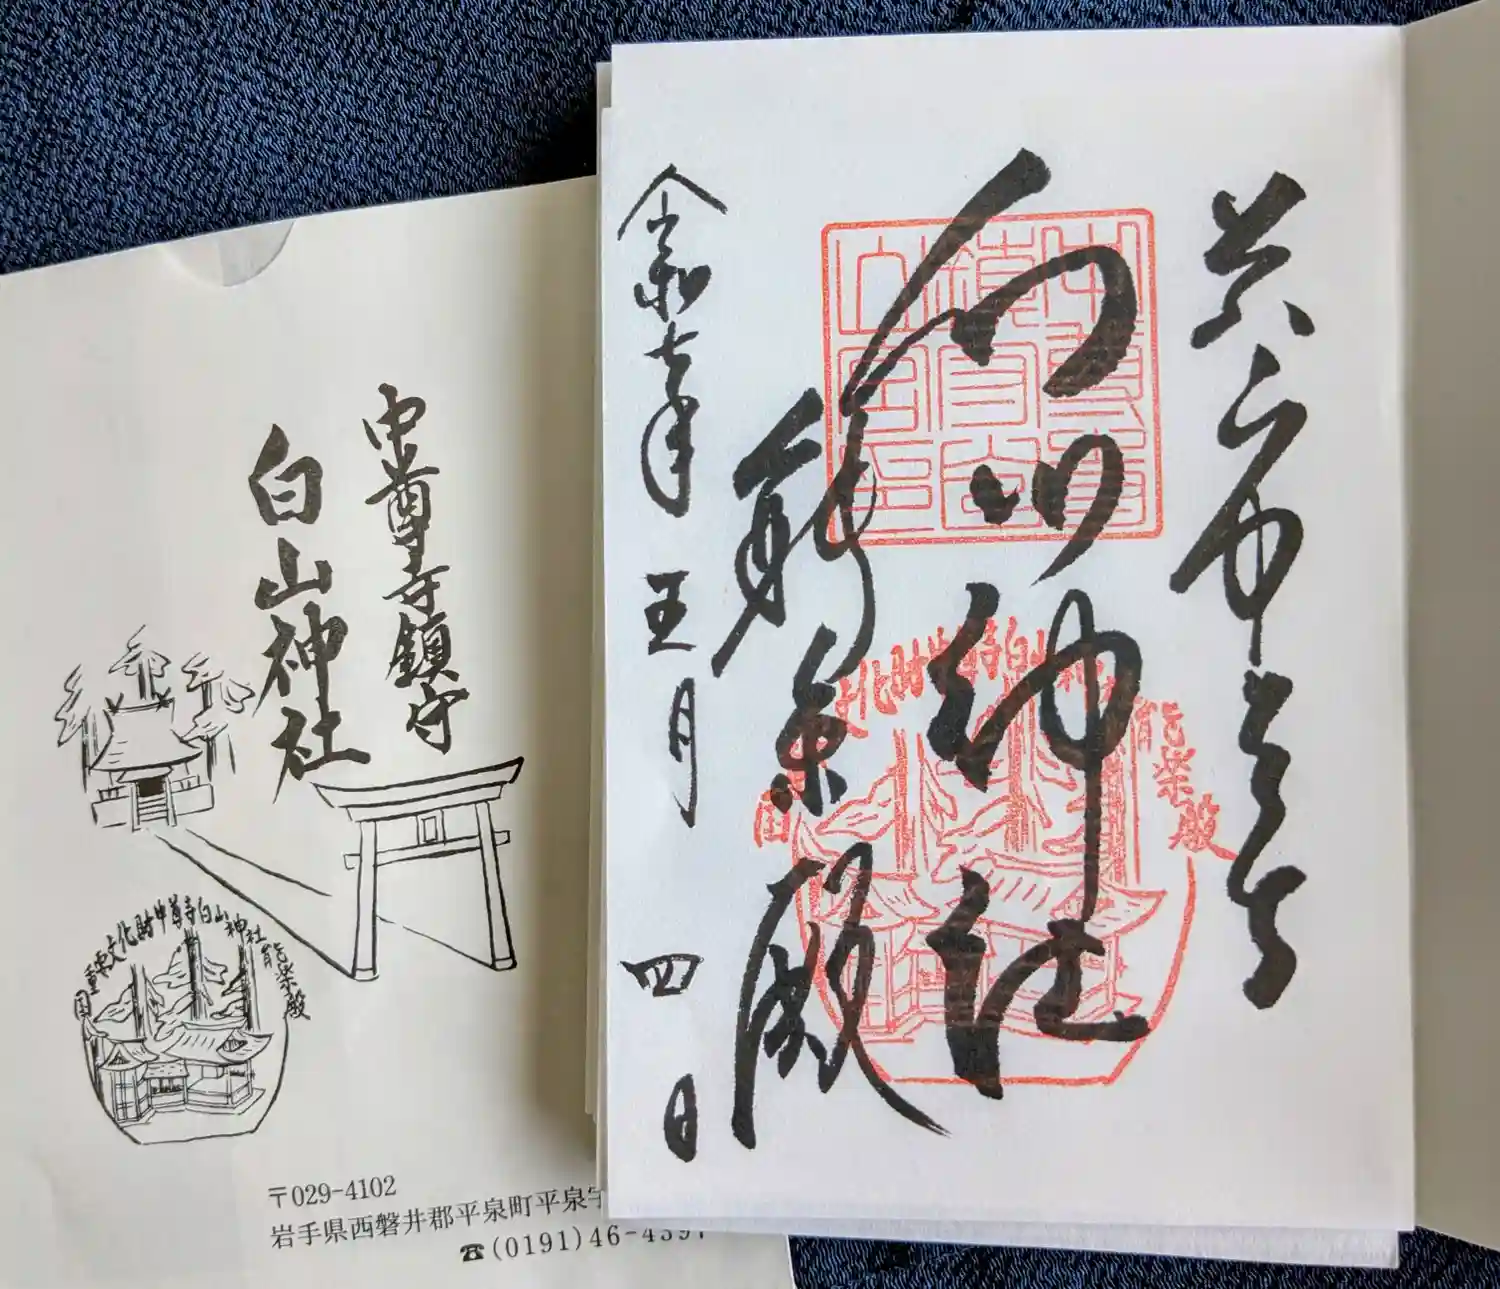 中尊寺鎮守
白山神社
国重要文化財中尊寺白山神社能楽殿
〒029-4102
岩手県西磐井郡平泉町平泉字
☎(0191)46-4397
関山中尊寺
白山神社
能楽殿
令和七年五月四日
中尊寺
鎮守白
山宮印
国重要文化財中尊寺白山神社能楽殿